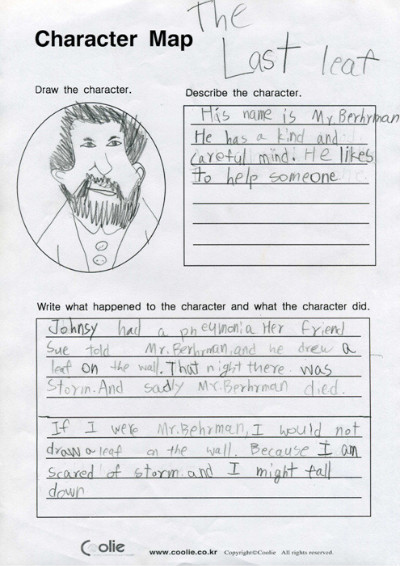 The
Last leaf
Character Map
Draw the character.
Describe the character.
His name is Mr.Berhrman
He has a kind and
careful mind. He likes
to help someone
Write what happened to the character and what the character did.
Johnsy had a pheymonia Her friend
Sue told Mr.Berhrman.and he drew a
leaf on the wall. That night there was
Storm.And sadly Mr.Berhrman died.
If I were Mr.Behrman, I would not
draw a leaf on the wall. Because I am
scared of storm and I might fall
down
Coolie www.coolie.co.kr Copyright©Coolie All rights reserved.